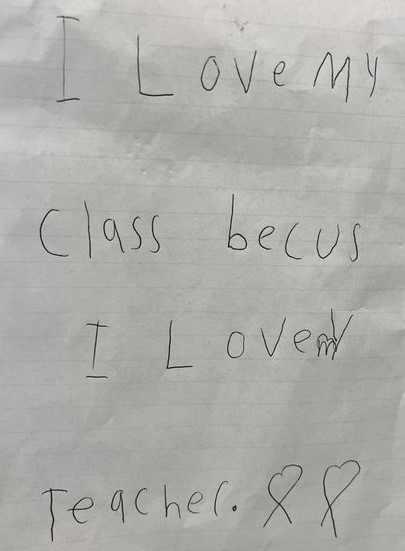 I Love My
Class becus
I Love my
Teacher.